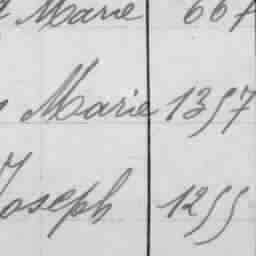 Marie 667
Marie 1357
Joseph 1255